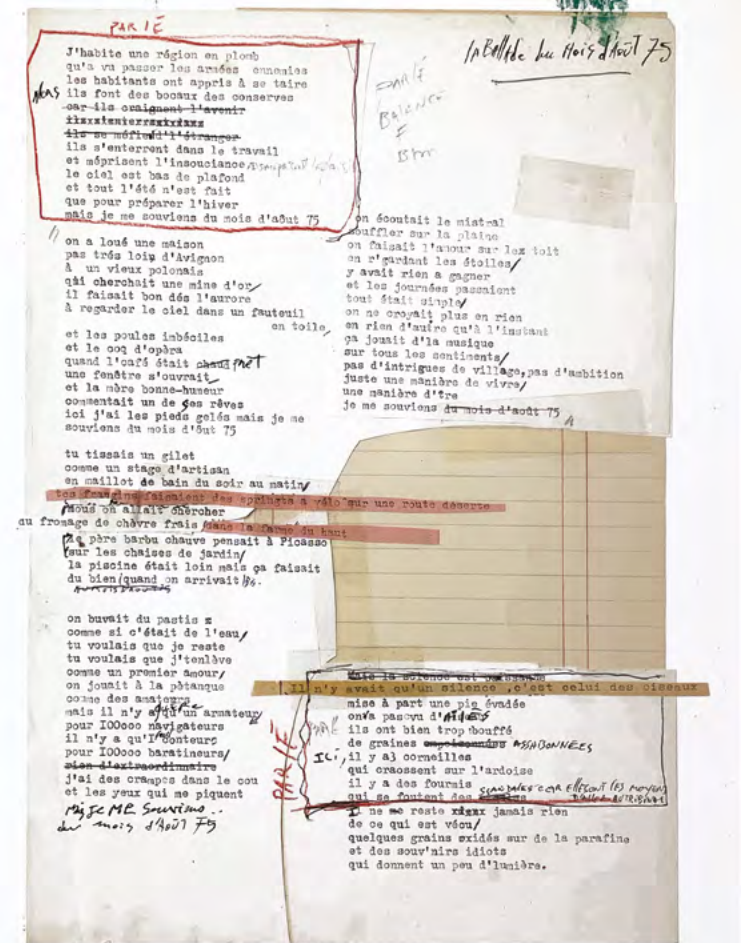 PARLÉ
J'habite une région en plomb
qu'a vu passer les armées ennemies
les habitants ont appris à se taire
ils font des bocaux des conserves
car ils craignent l'avenir
ils se méfient d'l'étranger
ils s'enterrent dans le travail
et méprisent l'insouciance
le ciel est bas de plafond
et tout l'été n'est fait
que pour préparer l'hiver
mais je me souviens du mois d'aôut 75
on a loué une maison
pas trés loin d'Avignon
À un vieux polonais
qui cherchait une mine d'or/
il faisait bon dés l'aurore
à regarder le ciel dans un fauteuil
en toile/
et les poules imbéciles
et le coq d'opéra
quand l'café était chaud prêt
une fenêtre s'ouvrait
et la mère bonne-humeur
commentait un de ses rêves
ici j'ai les pieds gelés mais je me
souviens du mois d'ôut 75
tu tissais un gilet
comme un stage d'artisan
en maillot de bain du soir au matin/
tes frangins faisaient des springts a vélo sur une route déserte
nous on allait chercher
au fromage de chèvre frais/dans la ferme du haut
le père barbu chauve pensait à Picasso
sur les chaises de jardin/
la piscine était loin mais ça faisait
du bien/quand on arrivait
on buvait du pastis x
comme si c'était de l'eau/
tu voulais que je reste
tu voulais que j'tenlève
comme un premier amour/
on jouait à la pètanque
comme des amateurs
mais il n'y a qu'un armateur
pour I00ooo navigateurs
il n'y a qu'I conteurs
pour I00ooo baratineurs/
rien d'extraordinnaire
j'ai des crampes dans le cou
et les yeux qui me piquent
Mais Je ME Souviens..
du mois d'Août 75
la Ballade du Mois d'Août 75
PARLÉ
BALANCÉ
on écoutait le mistral
souffler sur la plaine
on faisait l'amour sur lex toit
en r'gardant les étoiles/
y avait rien a gagner
et les journées passaient
tout était simple/
on ne croyait plus en rien
en rien d'autre qu'à l'instant
ça jouait d'la musique
sur tous les sentiments/
pas d'intrigues de village,pas d'ambition
juste une manière de vivre/
une manière d'tre
je me souviens du mois d'août 75
Il n'y avait qu'un silence ,c'est celui des oiseaux
mise à part une pie évadée
on'a pas vu d'AILES
ils ont bien trop bouffé
de graines empoisonnées ASSAISONNÉES
PARLÉ
ICI, il y a3 corneilles
qui craossent sur l'ardoise
il y a des fourmis
qui se foutent des
Il ne me reste jamais rien
de ce qui est vécu/
quelques grains oxidés sur de la parafine
et des souv'nirs idiots
qui donnent un peu d'lumière.